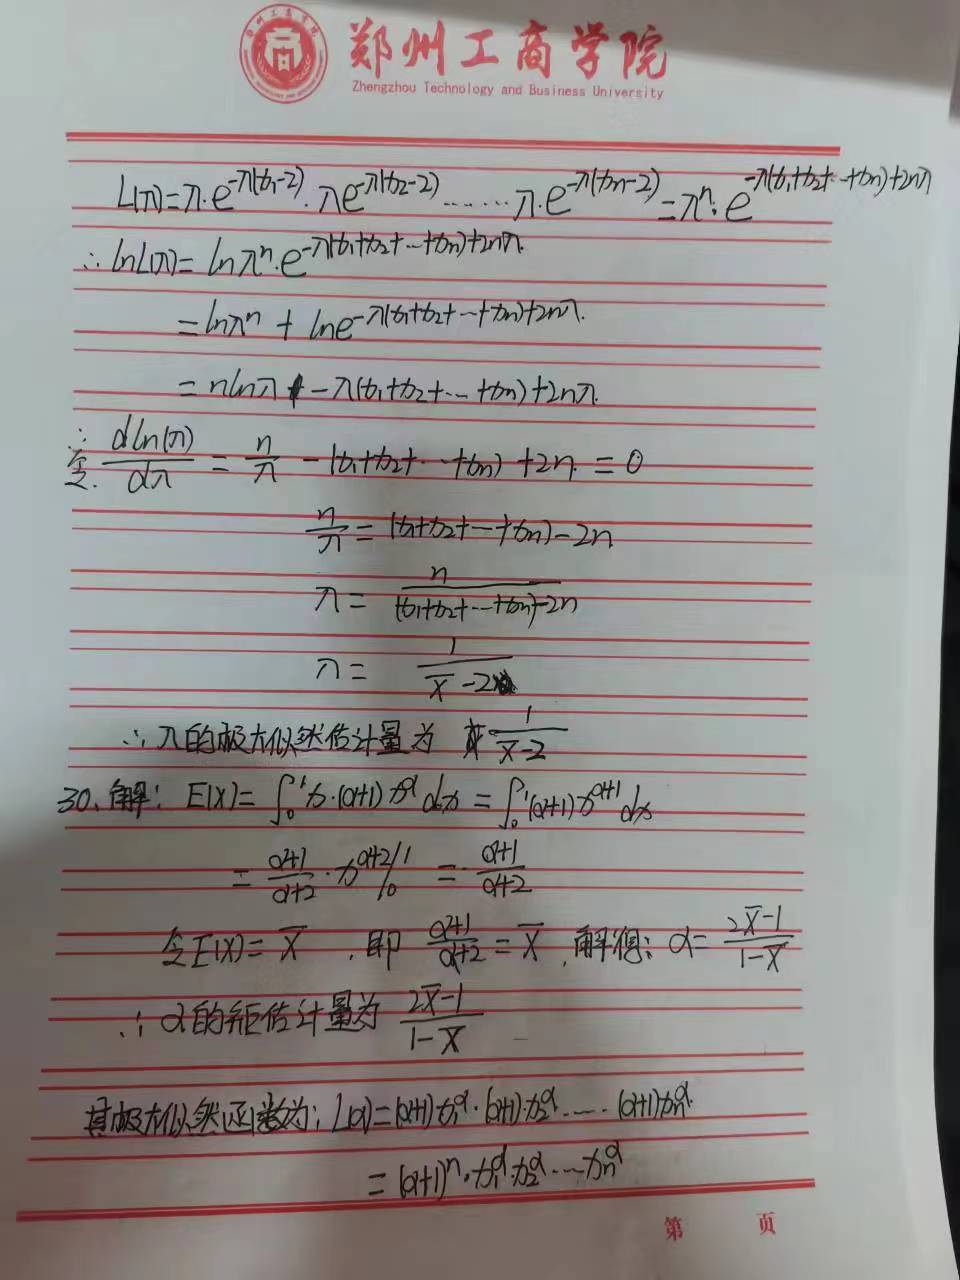 郑州工商学院
Zhengzhou Technology and Business University
L(λ)=λ·e^{-λ(x₁-2)}·λe^{-λ(x₂-2)}……λ·e^{-λ(xₙ-2)}=λⁿ·e^{-λ(x₁+x₂+…+xₙ)+2nλ}
∴ lnL(λ)=lnλⁿ·e^{-λ(x₁+x₂+…+xₙ)+2nλ}
=lnλⁿ+lne^{-λ(x₁+x₂+…+xₙ)+2nλ}
=nlnλ-λ(x₁+x₂+…+xₙ)+2nλ
令 dln(λ)/dλ = n/λ -(x₁+x₂+…+xₙ)+2n=0
n/λ=(x₁+x₂+…+xₙ)-2n
λ= n/((x₁+x₂+…+xₙ)-2n)
λ= 1/(X̄-2)
∴ λ的极大似然估计量为 1/(X̄-2)
30、解: E(X)=∫₀¹x·(α+1)x^α dx=∫₀¹(α+1)x^{α+1}dx
= (α+1)/(α+2)·x^{α+2}|₀¹ = (α+1)/(α+2)
令E(X)=X̄,即 (α+1)/(α+2)=X̄,解得: α=(2X̄-1)/(1-X̄)
∴ α的矩估计量为 (2X̄-1)/(1-X̄)
其极大似然函数为: L(α)=(α+1)x₁^α·(α+1)x₂^α……(α+1)xₙ^α
=(α+1)ⁿ·x₁^α·x₂^α…xₙ^α
第 页